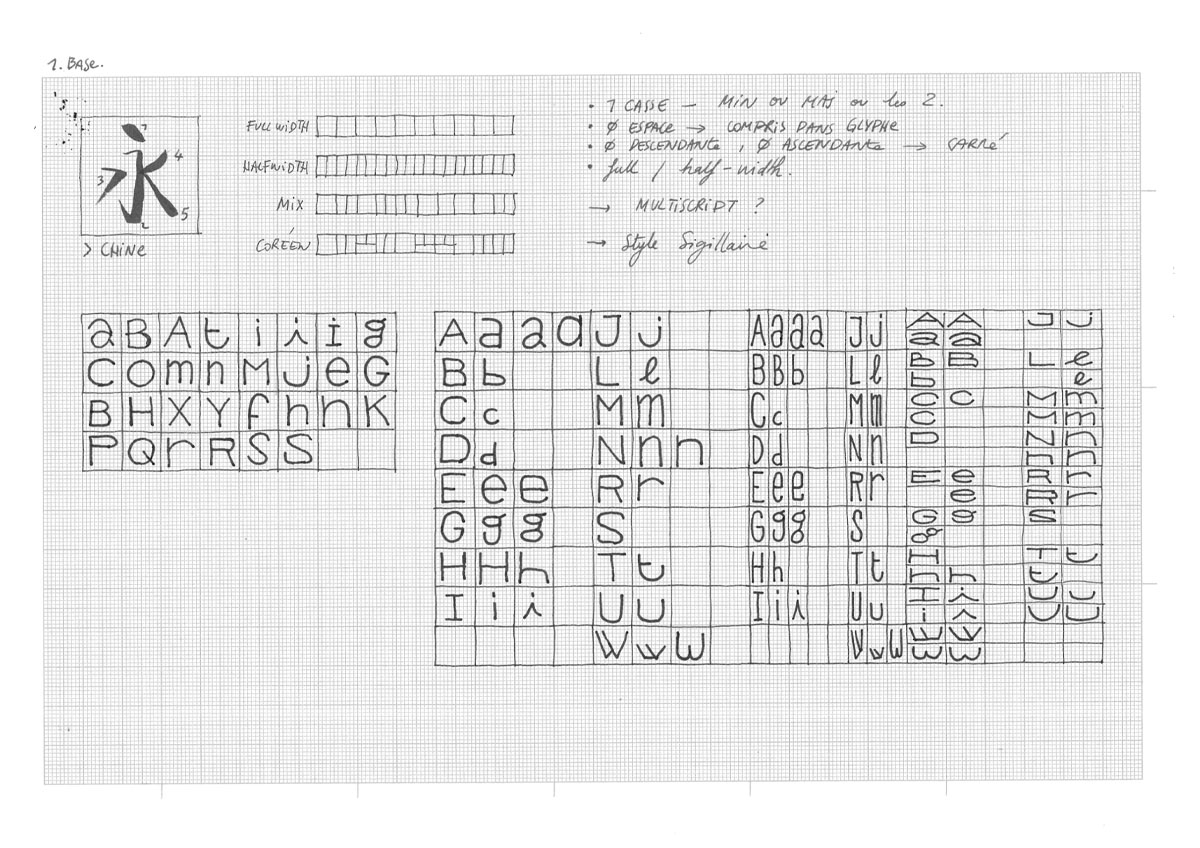 1. BASE.
永
1
2
3
4
5
> CHINE
FULLWIDTH
HALFWIDTH
MIX
CORÉEN
• 1 CASSE — MIN OU MAJ OU les 2.
• Ø ESPACE → COMPRIS DANS GLYPHE
• Ø DESCENDANTE, Ø ASCENDANTE → CARRÉ
• full / half-width.
→ MULTISCRIPT ?
→ Style Sigillaire
a B A t i i i g
C O m n M j e G
B H X Y f h n K
P Q r R S S
A a a a J j
B b L l
C c M m
D d N n n
E e e R r
G g g S
H H h T t
I i i U U
W w W
A a a a J j
B B b L l
C c M m
D d N n
E e e R r
G g g S
H h T t
I i i U u
W w W
A A J j
a a
B B L e
b e
C C M m
C M m
D N n
n n
E e R r
e R r
G g S
g
H T t
h h t
I i U U
i i U U
W W
W W